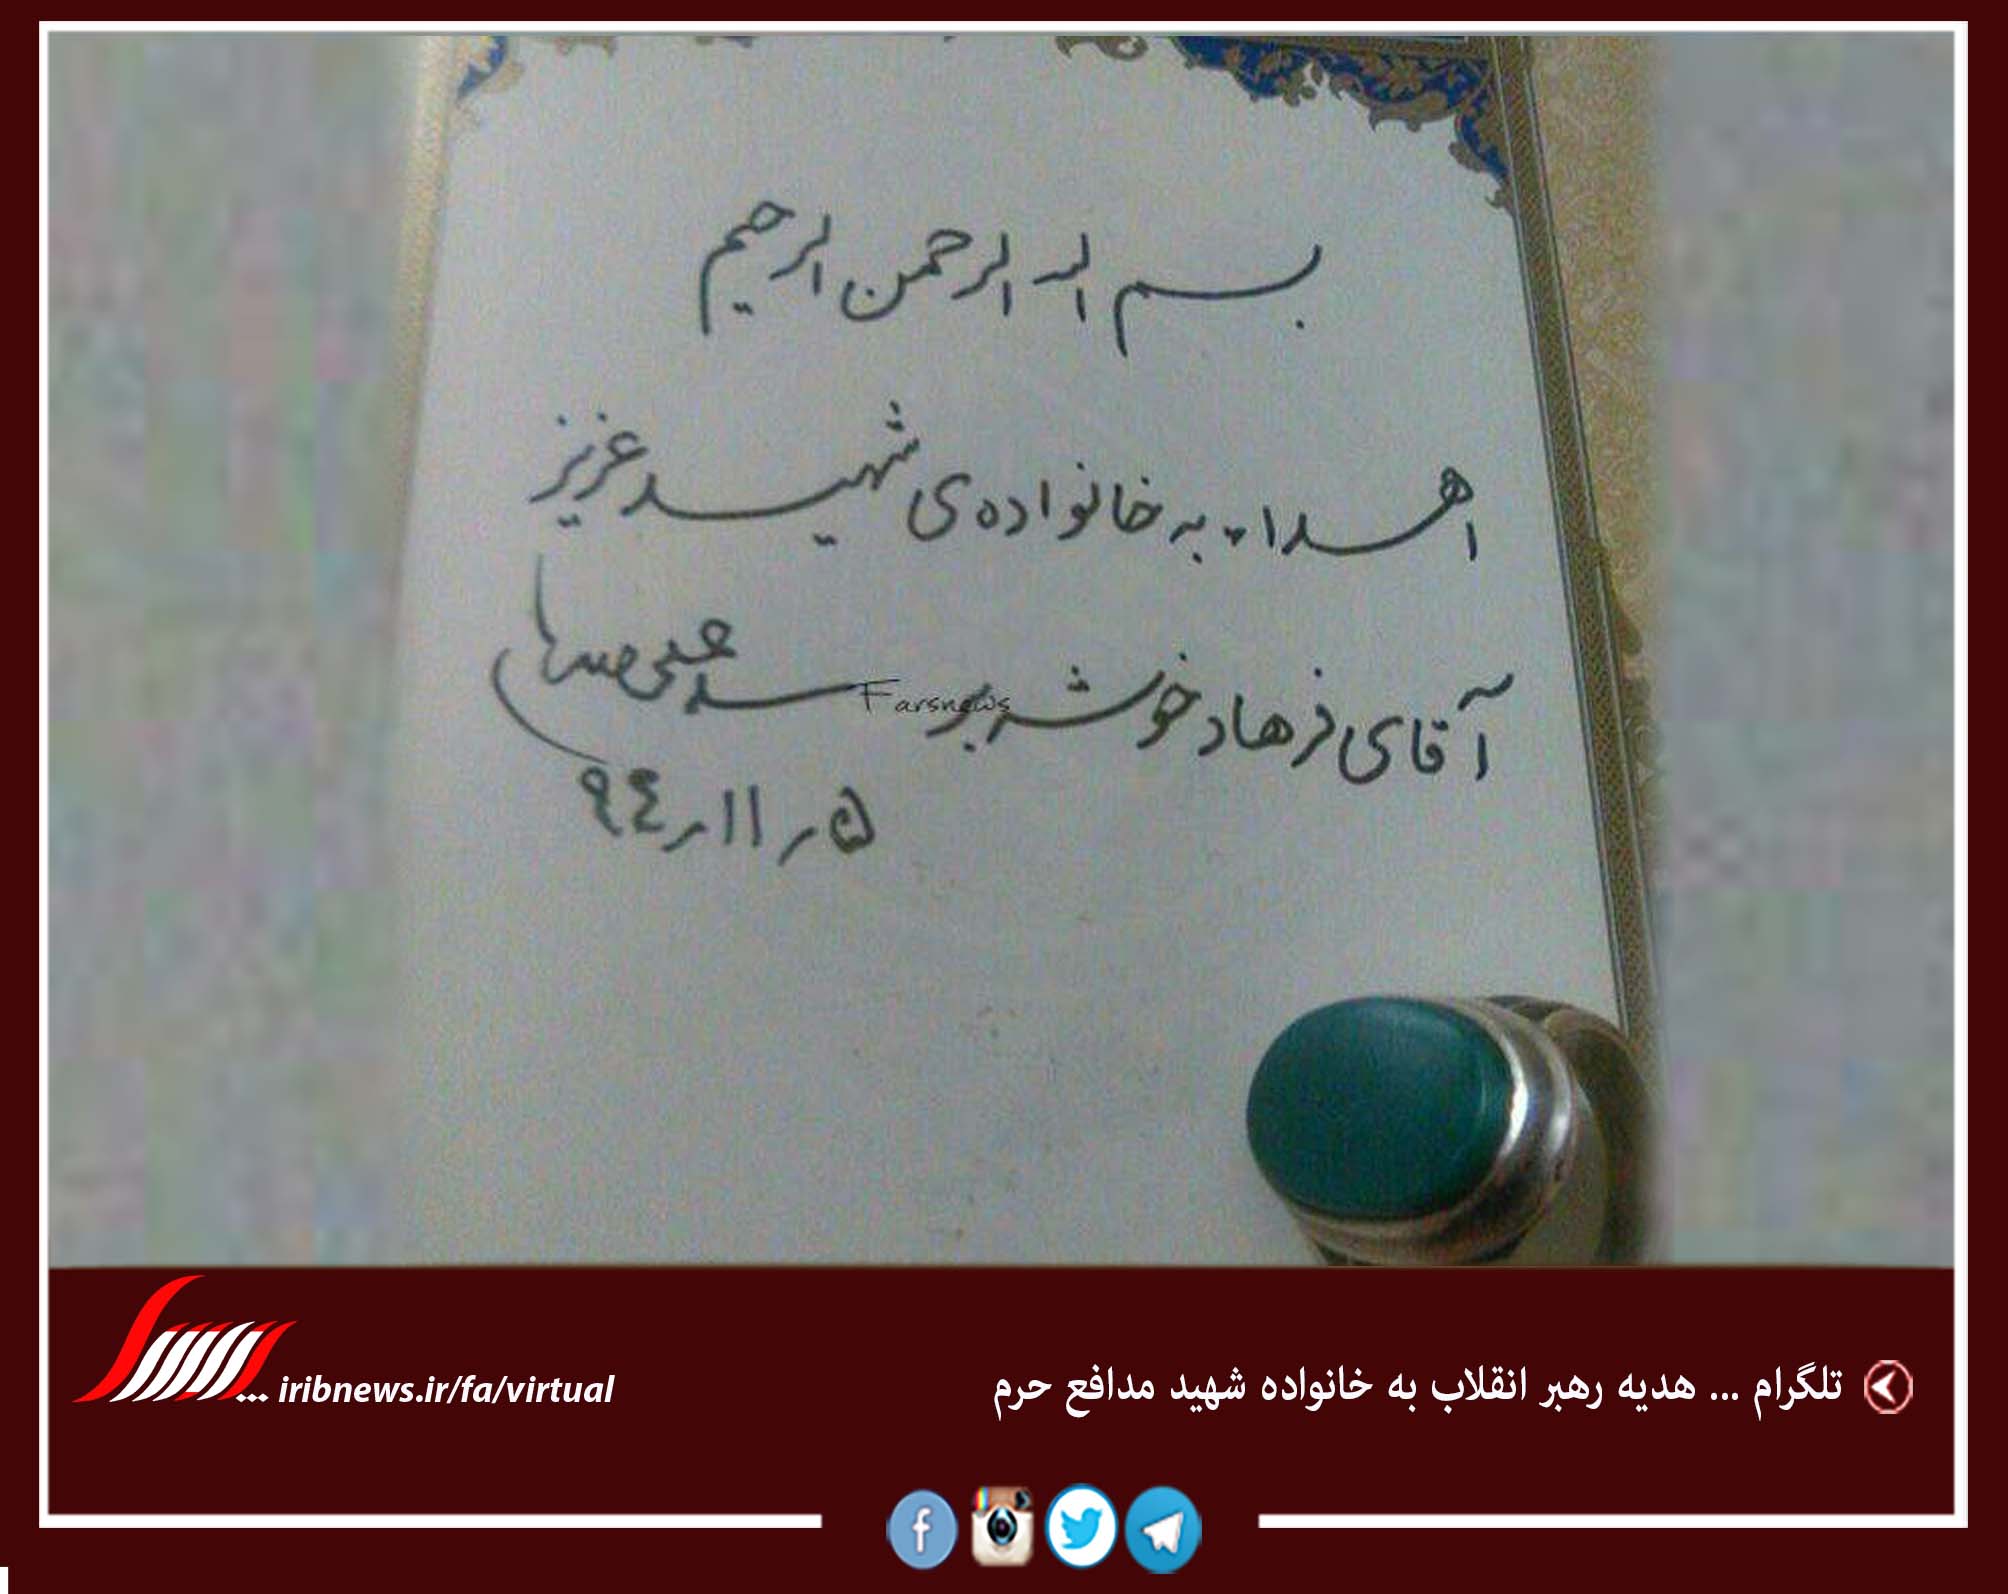 بسم الله الرحمن الرحیم
اهداء به خانواده‌ی شهید عزیز
آقای فرهاد خوشه‌بر
سید علی خامنه‌ای
Farsnews
۵ر۱۱ر۹۴
تلگرام ... هدیه رهبر انقلاب به خانواده شهید مدافع حرم
... iribnews.ir/fa/virtual